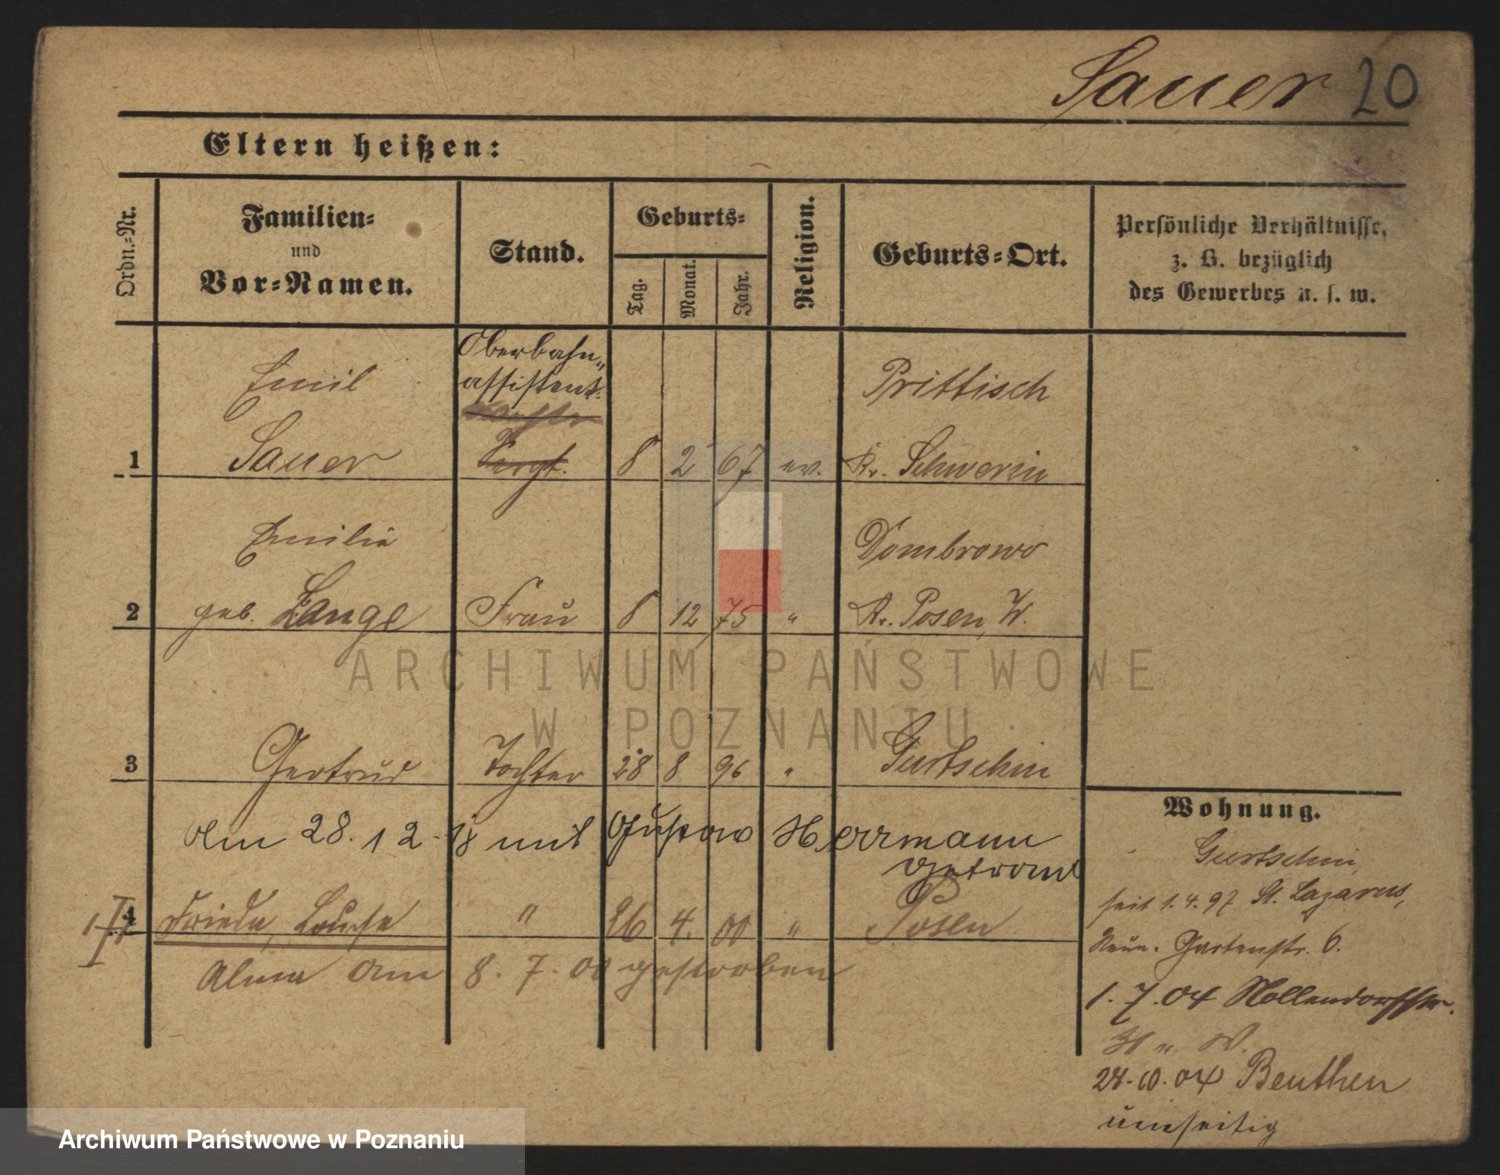 Sauer 20
Eltern heißen:
Ordn.-Nr.
Familien-
und
Vor-Namen.
Stand.
Geburts-
Tag.
Monat.
Jahr.
Religion.
Geburts-Ort.
Persönliche Verhältnisse,
z. B. bezüglich
des Gewerbes u. s. w.
Oberbahn-
assistent.
Emil
Prittisch
1 Sauer Sergt. 8 2 67 ev. Kr. Schwerin
Emilie
Dombrowo
2 geb. Lange Frau 8 12 75 " Kr. Posen, W.
ARCHIWUM PAŃSTWOWE
W POZNANIU
3 Gertrud Tochter 28 8 96 " Gurtschin
Am 28. 12. 18 mit Gustav Herrmann
getraut
4 Frieda, Louise " 26 4. 00 " Posen
Alma am 8. 7. 00 gestorben
Wohnung.
Gurtschin,
seit 1. 4. 97 St. Lazarus,
Neue. Gartenstr. 6.
1. 7. 04 Nollendorfstr.
24. 10. 04 Beuthen
umseitig
Archiwum Państwowe w Poznaniu